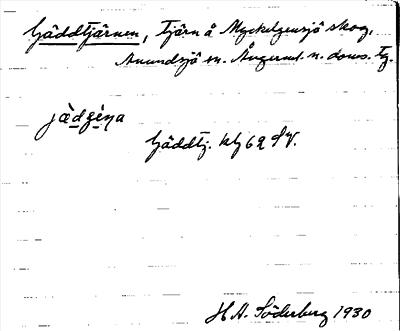 Gäddtjärnen, Tjärn å Myckelgensjö skog,
Anundsjö sn. Ångerml. n. doms. Tg.
jàdʒèṇa
Gäddtj.klj 62 SV.
H.A. Söderberg 1930